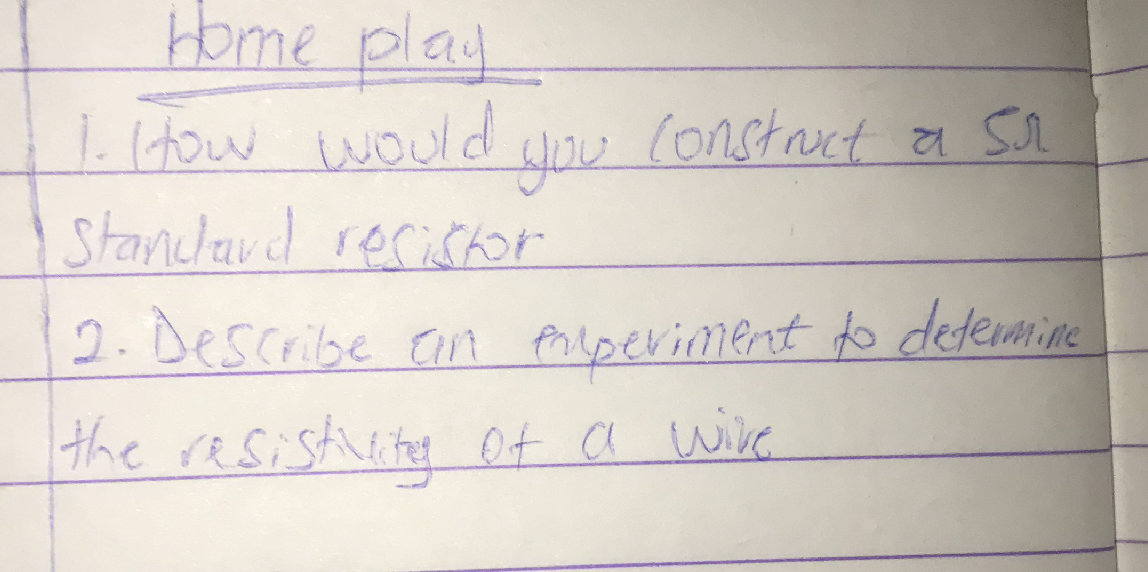 Home play
1. How would you construct a 5Ω
standard resistor
2. Describe an experiment to determine
the resistivity of a wire